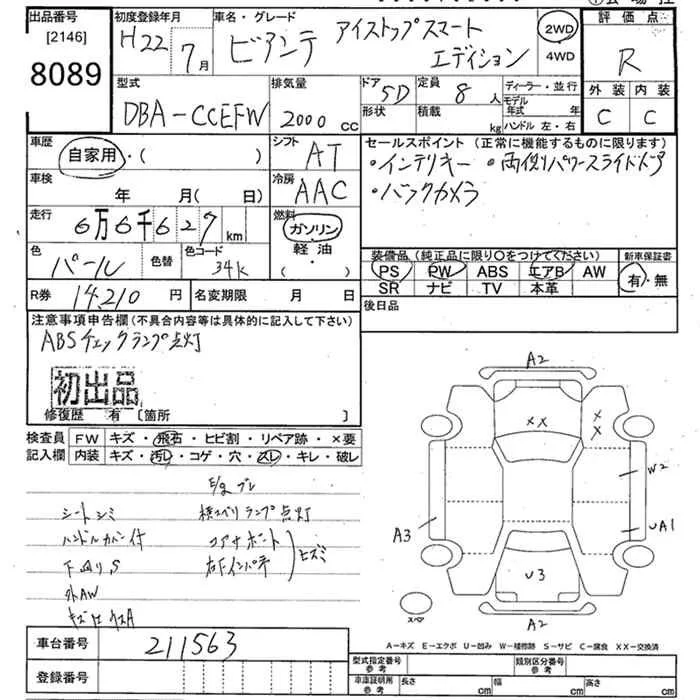 出品番号
[2146]
8089
初度登録年月
H22 7月
車名・グレード
ビアンテ アイストップスマート
エディション
2WD
4WD
評価点
R
外装 内装
C C
型式
DBA-CCEFW
排気量
2000 cc
ドア 5D
形状
定員 8 人
積載 kg
ディーラー・並行
モデル年式 年
ハンドル 左・右
車歴
自家用・( )
シフト
AT
車検
年 月(日)
冷房
AAC
走行
6万6千627 km
燃料
ガソリン
軽油
・( )
色
パール
色替
色コード
34K
R券 14,210 円
名変期限 月 日
セールスポイント(正常に機能するものに限ります)
・インテリキー ・両側パワースライドドア
・バックカメラ
装備品(純正品に限り○をつけてください)
PS PW ABS エアB AW
SR ナビ TV 本革
新車保証書
有・無
後日品
注意事項申告欄(不具合内容等は具体的に記入して下さい)
ABSチェックランプ点灯
初出品
修復歴 有 〔箇所 〕
検査員
記入欄
FW キズ・飛石・ヒビ割・リペア跡・×要
内装 キズ・汚レ・コゲ・穴・スレ・キレ・破レ
E/g ブレ
シートシミ 横スベリランプ点灯
ハンドルカバー付 コアサポート
下回りS 右Fインパネ
ヒズミ
外AW
キズ
A2
XX
X
X
W2
UA1
A3
U3
スペア
A2
A-キズ E-エクボ U-凹み W-補修跡 S-サビ C-腐食 XX-交換済
車台番号
211563
登録番号
型式指定番号
参考
類別区分番号
参考
車庫証明用
参考
長さ cm
幅 cm
高さ cm